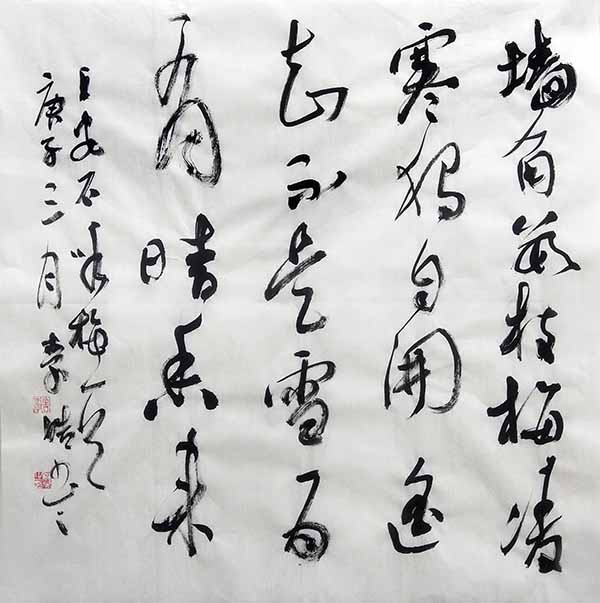 墙角数枝梅凌
寒独自开遥
知不是雪为
有暗香来
王安石咏梅一首
庚子三月